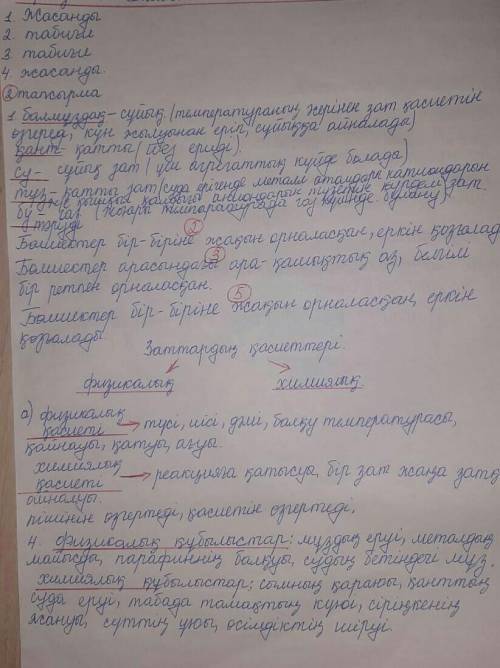 1. Жасанды
2. табиғи
3. табиғи
4. жасанды.
② тапсырма
1. балмұздақ - сұйық (температураның әсерінен зат қасиетін
өзгереді, күн жылуынан еріп, сұйыққа айналады)
қант - қатты (без ериді).
су - сұйық зат (үш агрегаттық күйде болады)
тұз - қатты зат (суда ерігенде металл атомдары катиондарын
және қышқыл қалдығы аниондарын түзетін күрделі зат.
бу - газ (жоғары температурада газ күйінде. булану)
③ теруде ②
Бөлшектер бір-біріне жақын орналасқан, еркін қозғалад
③
Бөлшектер арасындағы ара-қашықтық аз, белгілі
бір ретпен орналасқан.
⑤
Бөлшектер бір-біріне жақын орналасқан, еркін
қозғалады.
Заттардың қасиеттері.
физикалық химиялық
а) физикалық
қасиеті → түсі, иісі, дәмі, балқу температурасы,
қайнауы, қатуы, ағуы.
химиялық
қасиеті → реакцияға қатысуы, бір зат жаңа затқ
айналуы.
пішінін өзгертеді, қасиетін өзгертеді,
4. физикалық құбылыстар: мұздың еруі, металдың
майысуы, парафиннің балқуы, судың бетіндегі мұз.
химиялық құбылыстар; сымның қараюы, қанттың
суда еруі, табада тамақтың күюі, сіріңкенің
жануы, сүттің ұюы, өсімдіктің шіруі.